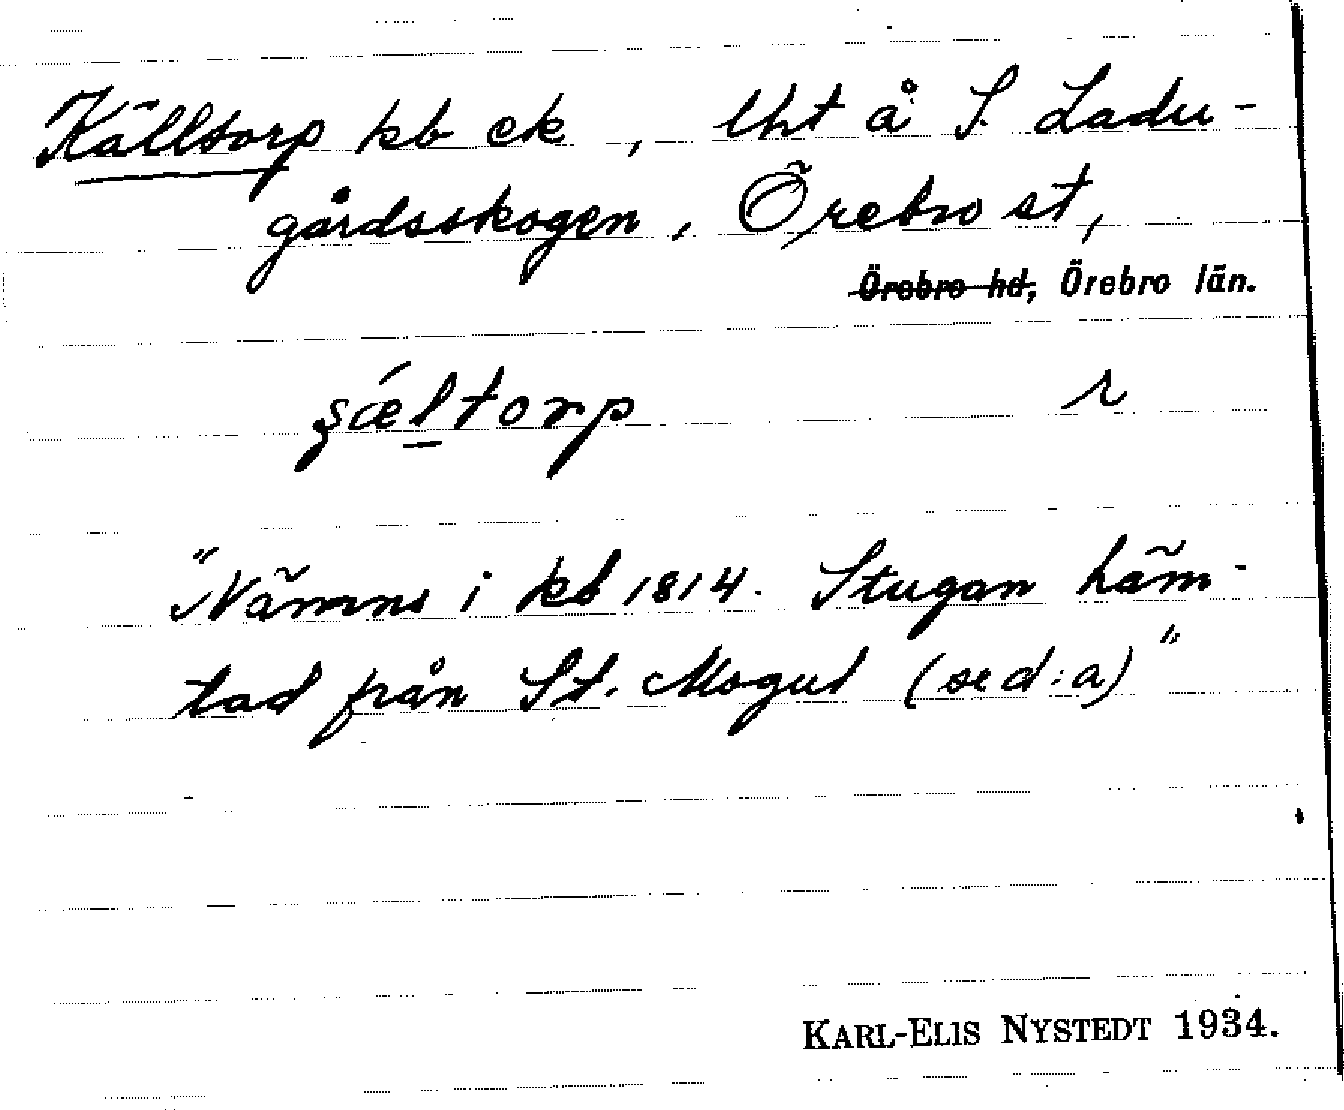 Källtorp kb ek , lht å S. Ladu-
gårdsskogen, Örebro st,
Örebro hd, Örebro län.
şǽltorp r
"Nämns i kb 1814. Stugan häm-
tad från St. Mogul (se d:a)"
KARL-ELIS NYSTEDT 1934.